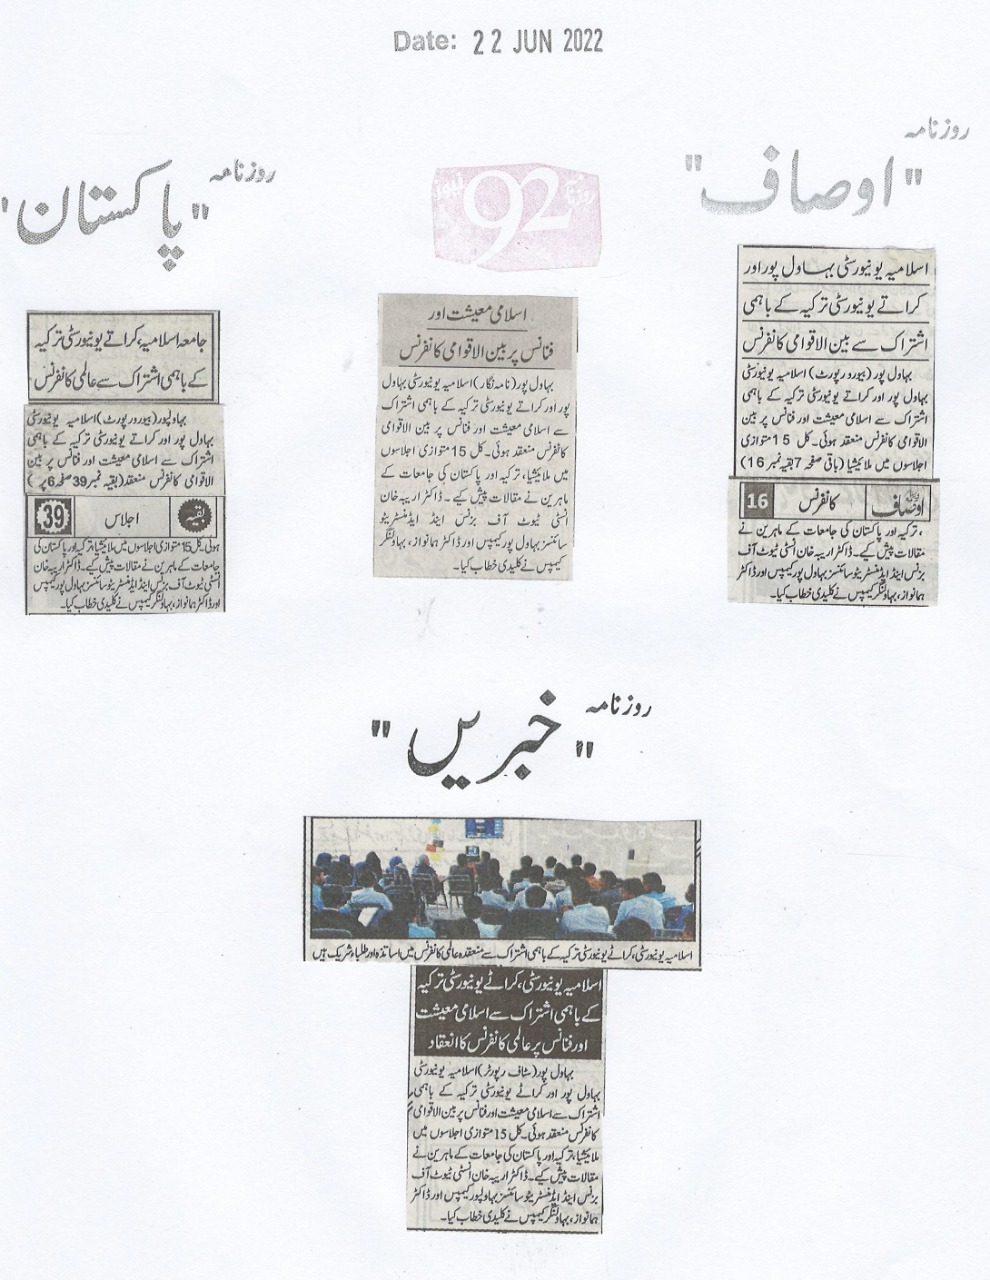 Date: 22 JUN 2022
روزنامہ
"اوصاف"
اسلامیہ یونیورسٹی بہاول پور اور
کراتے یونیورسٹی ترکیہ کے باہمی
اشتراک سے بین الاقوامی کانفرنس
بہاول پور (بیورورپورٹ) اسلامیہ یونیورسٹی
بہاول پور اور کراتے یونیورسٹی ترکیہ کے باہمی
اشتراک سے اسلامی معیشت اور فنانس پر بین
الاقوامی کانفرنس منعقد ہوئی۔ کل 15 متوازی
اجلاسوں میں ملائیشیا (باقی صفحہ 7 بقیہ نمبر 16)
اوصاف
کانفرنس
16
، ترکیہ اور پاکستان کی جامعات کے ماہرین نے
مقالات پیش کیے۔ ڈاکٹر اریبہ خان انسٹی ٹیوٹ آف
بزنس اینڈ ایڈمنسٹریٹو سائنسز بہاول پور کیمپس اور ڈاکٹر
ہما نواز، بہاولنگر کیمپس نے کلیدی خطاب کیا۔
روزنامہ 92 نیوز
اسلامی معیشت اور
فنانس پر بین الاقوامی کانفرنس
بہاول پور (نامہ نگار) اسلامیہ یونیورسٹی بہاول
پور اور کراتے یونیورسٹی ترکیہ کے باہمی اشتراک
سے اسلامی معیشت اور فنانس پر بین الاقوامی
کانفرنس منعقد ہوئی۔ کل 15 متوازی اجلاسوں
میں ملائیشیا، ترکیہ اور پاکستان کی جامعات کے
ماہرین نے مقالات پیش کیے۔ ڈاکٹر اریبہ خان
انسٹی ٹیوٹ آف بزنس اینڈ ایڈمنسٹریٹو
سائنسز بہاول پور کیمپس اور ڈاکٹر ہما نواز، بہاولنگر
کیمپس نے کلیدی خطاب کیا۔
روزنامہ
"پاکستان"
جامعہ اسلامیہ، کراتے یونیورسٹی ترکیہ
کے باہمی اشتراک سے عالمی کانفرنس
بہاولپور (بیورورپورٹ) اسلامیہ یونیورسٹی
بہاول پور اور کراتے یونیورسٹی ترکیہ کے باہمی
اشتراک سے اسلامی معیشت اور فنانس پر بین
الاقوامی کانفرنس منعقد (بقیہ نمبر 39 صفحہ 6 پر)
بقیہ
اجلاس
39
ہوئی۔ کل 15 متوازی اجلاسوں میں ملائیشیا، ترکیہ اور پاکستان کی
جامعات کے ماہرین نے مقالات پیش کیے۔ ڈاکٹر اریبہ خان
انسٹی ٹیوٹ آف بزنس اینڈ ایڈمنسٹریٹو سائنسز بہاول پور کیمپس
اور ڈاکٹر ہما نواز، بہاولنگر کیمپس نے کلیدی خطاب کیا۔
روزنامہ
"خبریں"
اسلامیہ یونیورسٹی، کراٹے یونیورسٹی ترکیہ کے باہمی اشتراک سے منعقدہ عالمی کانفرنس میں اساتذہ اور طلباء شریک ہیں
اسلامیہ یونیورسٹی، کراٹے یونیورسٹی ترکیہ
کے باہمی اشتراک سے اسلامی معیشت
اور فنانس پر عالمی کانفرنس کا انعقاد
بہاول پور (سٹاف رپورٹر) اسلامیہ یونیورسٹی
بہاول پور اور کراٹے یونیورسٹی ترکیہ کے باہمی
اشتراک سے اسلامی معیشت اور فنانس پر بین الاقوامی
کانفرنس منعقد ہوئی۔ کل 15 متوازی اجلاسوں میں
ملائیشیا، ترکیہ اور پاکستان کی جامعات کے ماہرین نے
مقالات پیش کیے۔ ڈاکٹر اریبہ خان انسٹی ٹیوٹ آف
بزنس اینڈ ایڈمنسٹریٹو سائنسز بہاولپور کیمپس اور ڈاکٹر
ہما نواز، بہاولنگر کیمپس نے کلیدی خطاب کیا۔